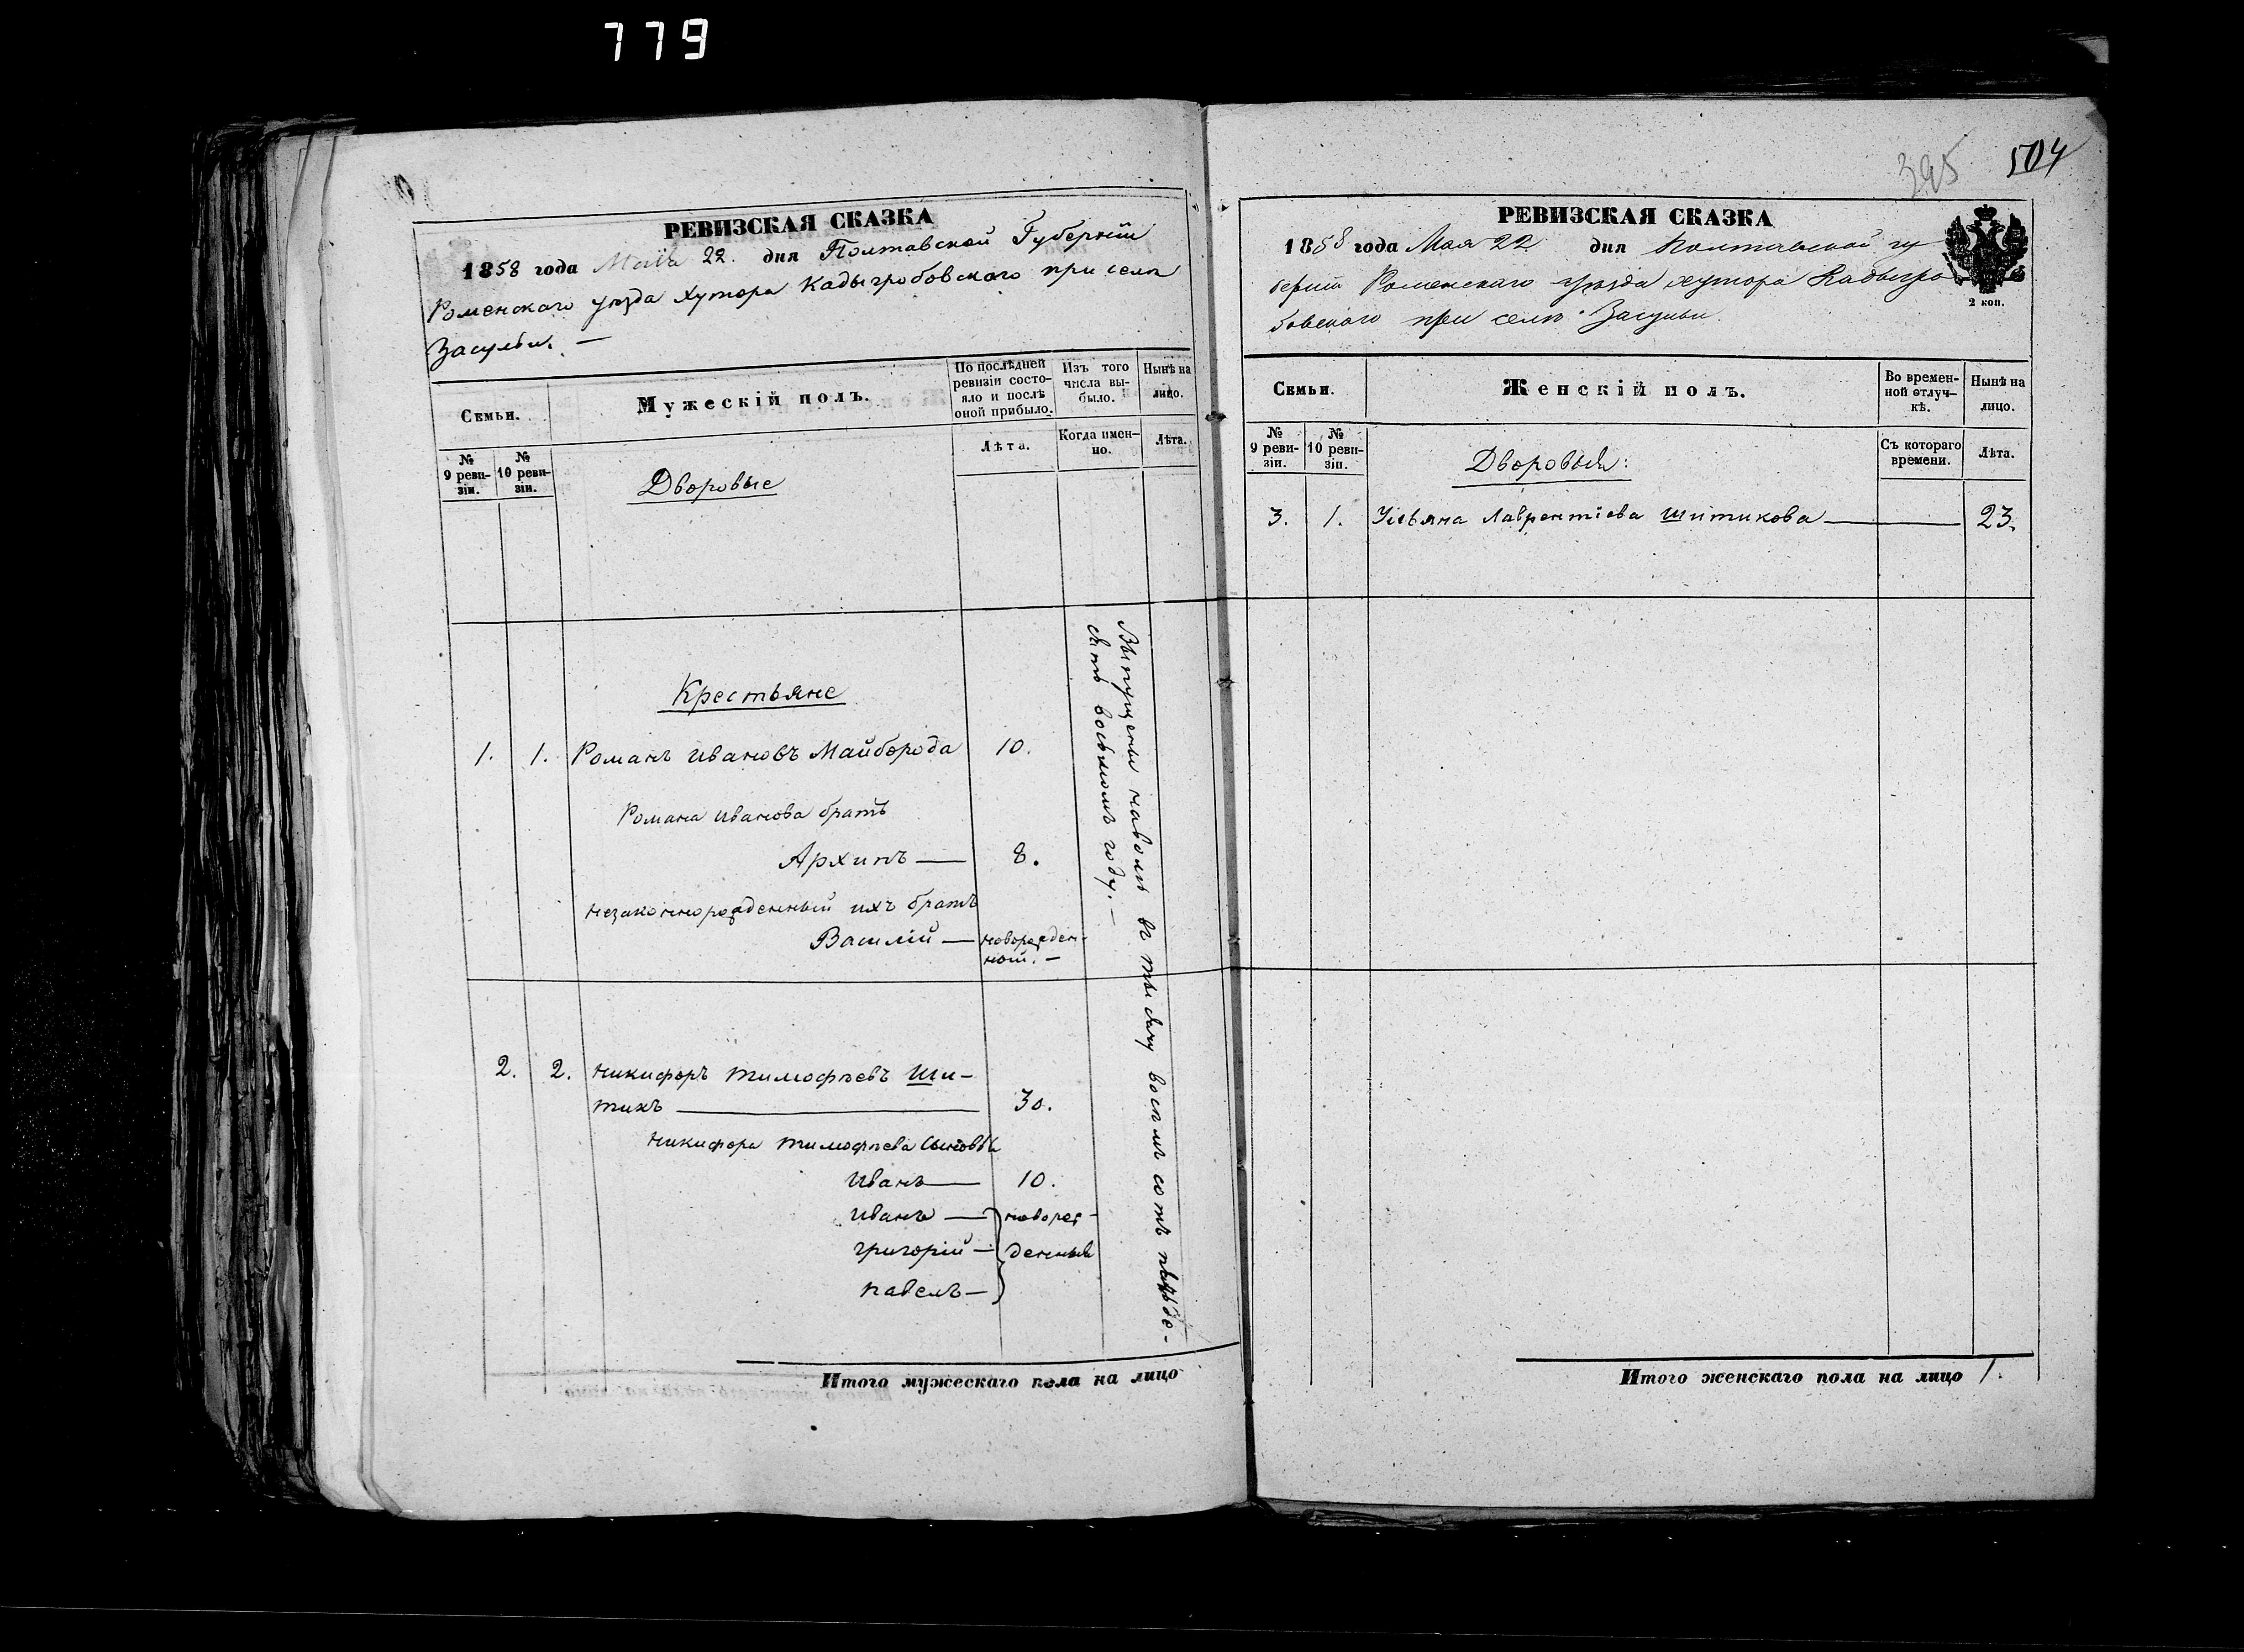 779
РЕВИЗСКАЯ СКАЗКА
1858 года Мая 22. дня Полтавской Губерніи
Роменскаго уѣзда Хутора Кадыгробовскаго при селѣ
Засульи. —
Семьи.
Мужескій полъ.
По послѣдней ревизіи состояло и послѣ оной прибыло.
Изъ того числа выбыло.
Нынѣ на лицо.
№ 9 ревизіи.
№ 10 ревизіи.
Лѣта.
Когда именно.
Лѣта.
Дворовые
Крестьяне
1. 1. Романъ Ивановъ Майборода 10.
Романа Иванова братъ
Архипъ — 8.
незаконнорожденный ихъ братъ
Василій — новорожден-
ной. —
2. 2. Никифоръ Тимофѣевъ Ши-
тикъ — 30.
Никифора Тимофѣева сыновья
Иванъ — 10.
Иванъ — новорож-
Григорій — денные
Павелъ —
Выпущены наволю въ тысячу восемь сотъ пятьде-
сятъ восьмомъ году. —
Итого мужескаго пола на лицо
395 504
РЕВИЗСКАЯ СКАЗКА
1858 года Мая 22 дня Полтавской гу
берніи Роменскаго уѣзда хутора Кадыгро
бовскаго при селѣ Засульи
2 коп.
Семьи.
Женскій полъ.
Во временной отлучкѣ.
Нынѣ на лицо.
№ 9 ревизіи.
№ 10 ревизіи.
Съ котораго времени.
Лѣта.
Дворовыя:
3. 1. Ульяна Лаврентіева Шитикова — 23.
Итого женскаго пола на лицо 1.